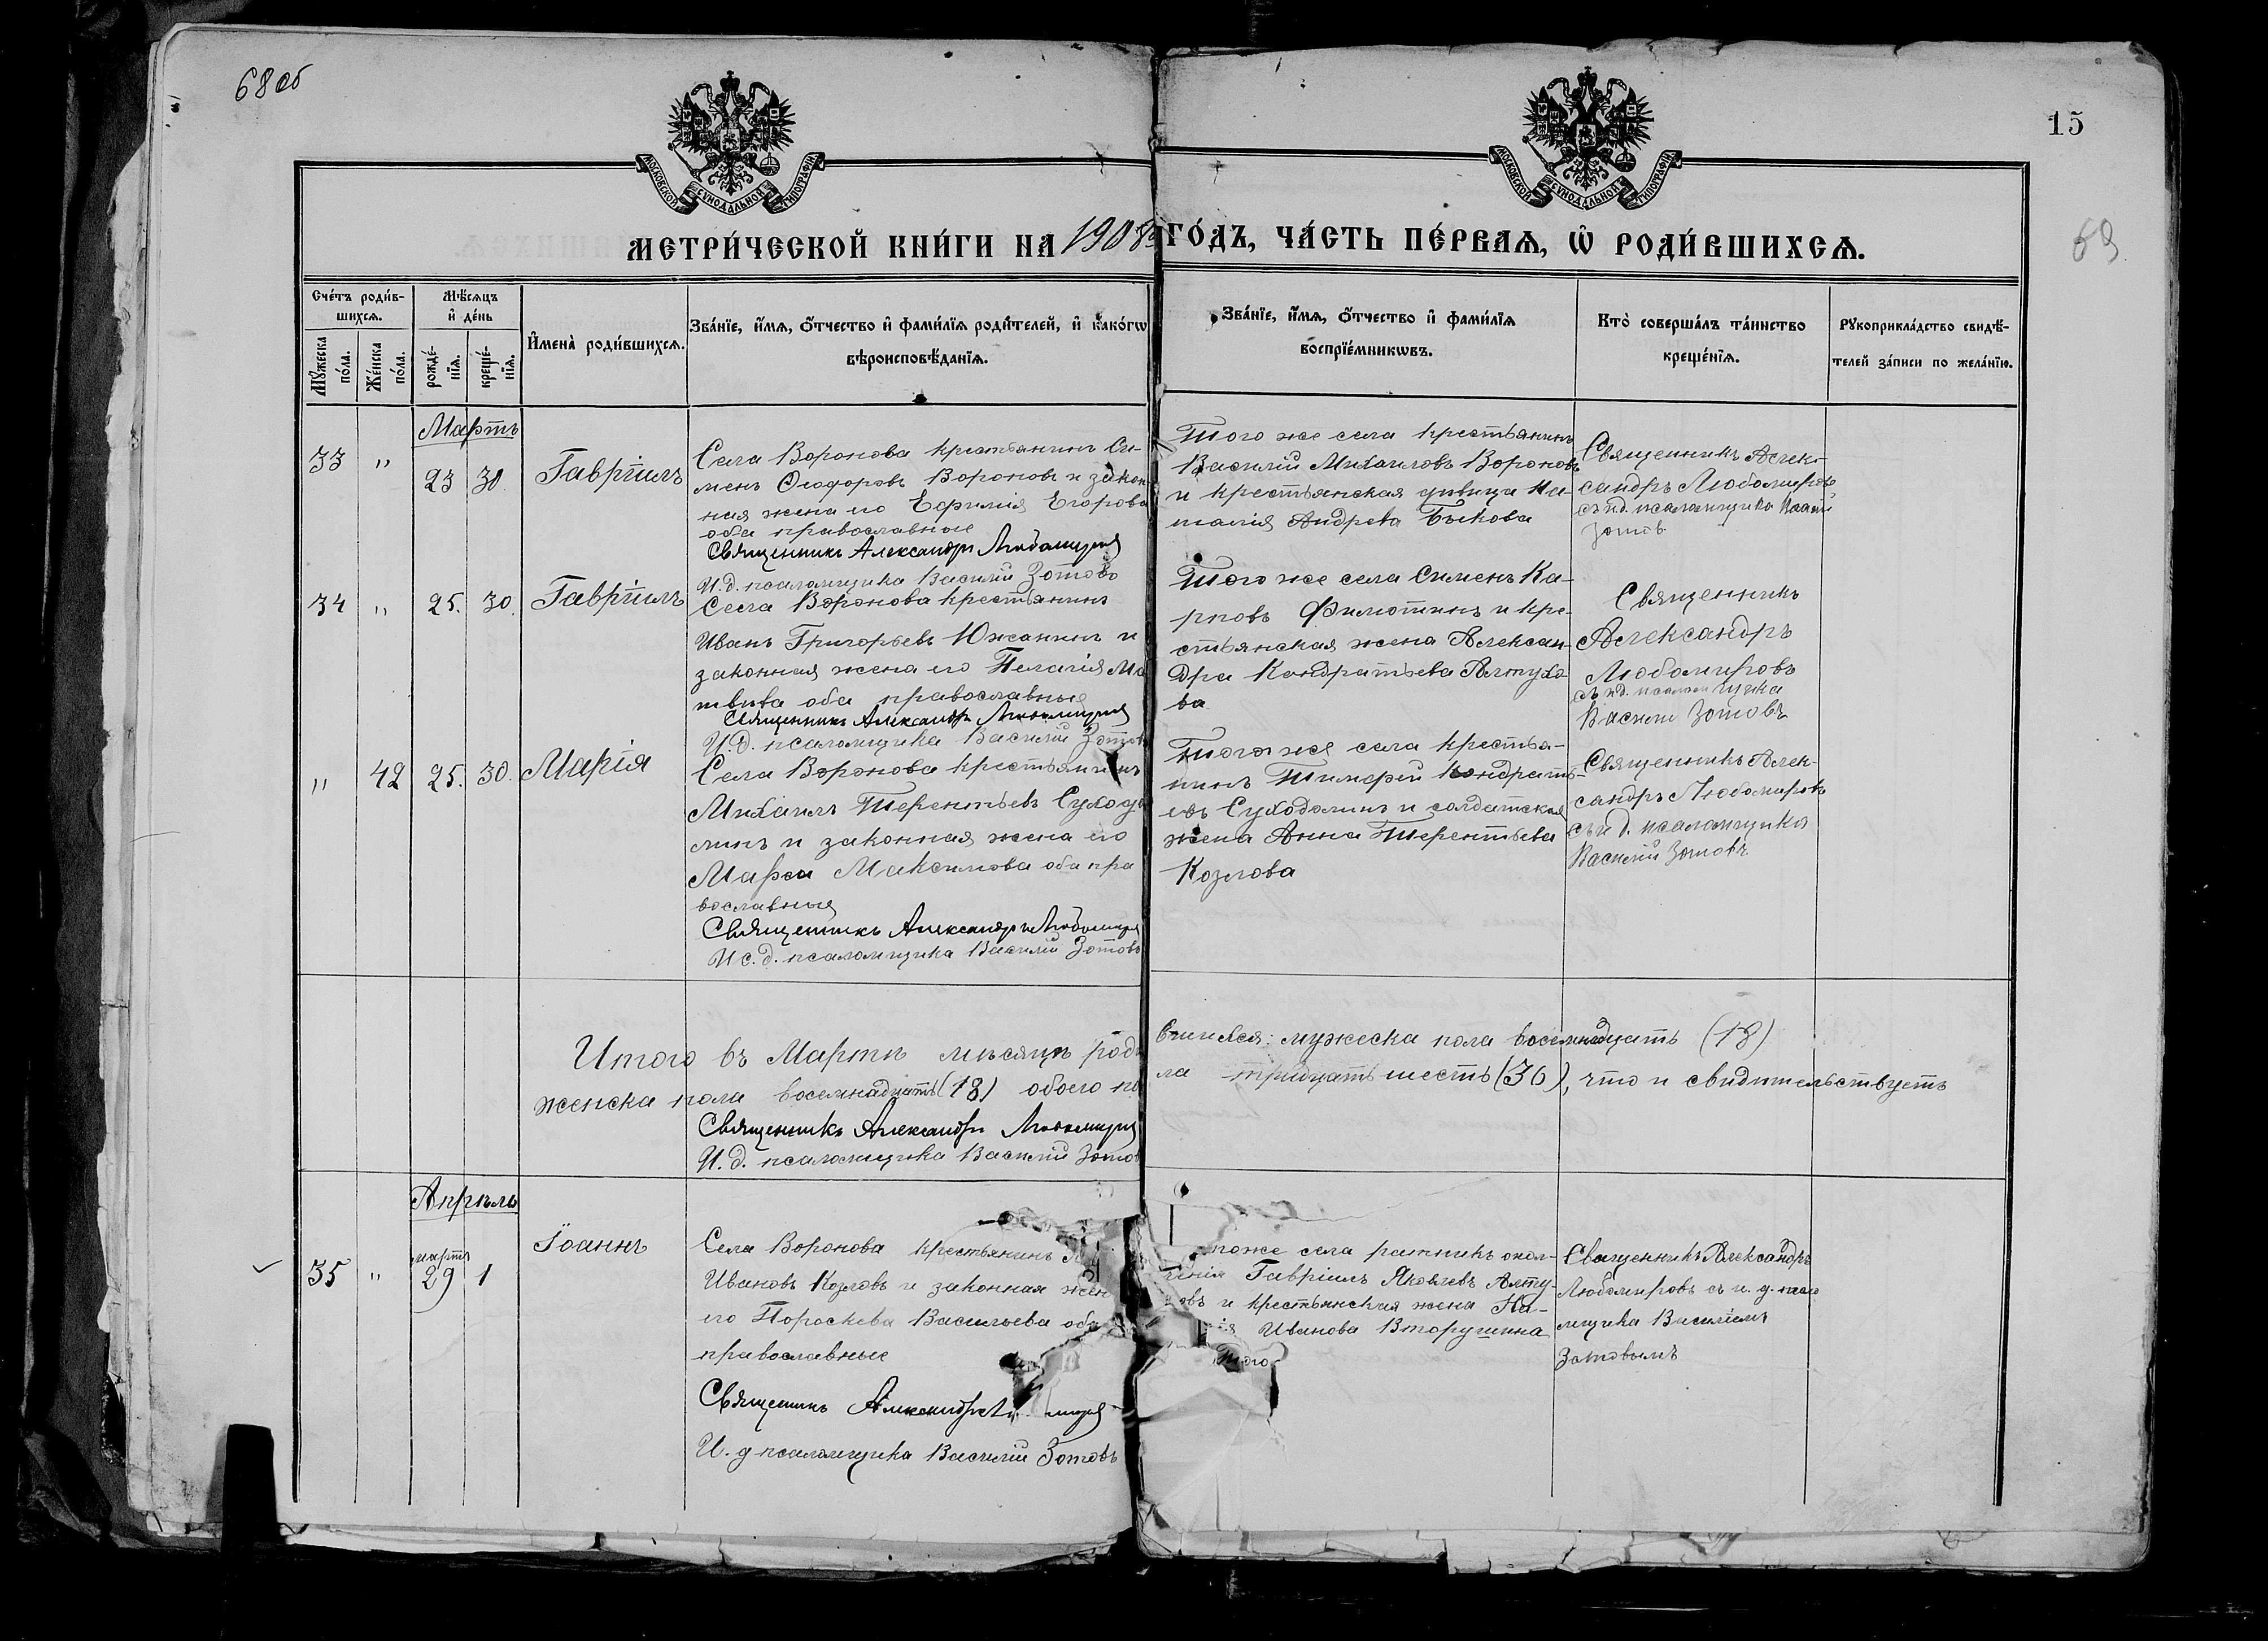 68 об
15
69
МОСКОВСКОЙ СѴНОДАЛЬНОЙ ТИПОГРАФІИ
МОСКОВСКОЙ СѴНОДАЛЬНОЙ ТИПОГРАФІИ
МЕТРИ́ЧЕСКОЙ КНИ́ГИ НА 1908й ГО́ДЪ, ЧА́СТЬ ПЕ́РВАѦ, Ѡ҆ РОДИ́ВШИХСѦ.
Сче́тъ роди́в-
шихсѧ.
Мꙋ́жеска по́ла.
Же́нска по́ла.
Мѣ́сѧцъ
и҆ де́нь
рожде́-нїѧ.
креще́-нїѧ.
И҆мена̀ роди́вшихсѧ.
Зва́нїе, и҆́мѧ, ѻ҆́тчество и҆ фами́лїѧ роди́телей, и҆ како́гѡ
вѣроисповѣ́данїѧ.
Зва́нїе, и҆́мѧ, ѻ҆́тчество и҆ фами́лїѧ
воспрїе́мникѡвъ.
Кто̀ соверша́лъ та́инство
креще́нїѧ.
Рꙋкоприкла́дство свидѣ́-
телей за́писи по жела́нїю.
Мартъ
33 " 23 30 Гавріилъ
Села Воронова крестьянинъ Си-
менъ Ѳеодоровъ Вороновъ и закон
ная жена его Ефимія Егорова
оба православные
Священникъ Александръ Любомировъ
И.д. псаломщика Василій Зотовъ
Того же села крестьянинъ
Василій Михаиловъ Вороновъ
и крестьянская дѣвица На-
талія Андрева Быкова
Священникъ Алек-
сандръ Любомировъ
съ и.д. псаломщика Василій
Зотовъ
34 " 25. 30. Гавріилъ
Села Воронова крестьянинъ
Иванъ Григорьевъ Южанинъ и
законная жена его Пелагія Ма
твѣева оба православныя
Священникъ Александръ Любомировъ
И.д. псаломщика Василій Зотовъ
Того же села Сименъ Ка-
рповъ Филютинъ и кре-
стьянская жена Алексан-
дра Кондратьева Алтухо-
ва
Священникъ
Александръ
Любомировъ
съ и.д. псаломщика
Василій Зотовъ
" 42 25. 30. Марія
Села Воронова крестьянинъ
Михаилъ Терентьевъ Суходо
линъ и законная жена его
Марѳа Максимова оба пра
вославныя
Священникъ Александръ Любомировъ
Ис.д. псаломщика Василій Зотовъ
Того же села крестья-
нинъ Тимофей Кондрать-
евъ Суходолинъ и солдатская
жена Анна Терентьева
Козлова
Священникъ Алек-
сандръ Любомировъ
съ и д. псаломщика
Василій Зотовъ
Итого въ Мартѣ мѣсяцѣ роди
вшихся: мужеска пола восемнадцать (18)
женска пола восемнадцать (18) обоего по
ла тридцать шесть (36), что и свидѣтельствуетъ
Священникъ Александръ Любомировъ
И.д. псаломщика Василій Зотовъ
Апрѣль
35 " марта 29 1 Іоаннъ
Села Воронова крестьянинъ
Ивановъ Козловъ и законная жен
его Пороскева Васильева оба
православные
Священникъ Александръ
И.д псаломщика Василій Зотовъ
тоже села ратникъ опол-
ченія Гавріилъ Яковлевъ Алту-
ховъ и крестьянская жена На-
Иванова Вторушина
Того
Священникъ Александръ
Любомировъ съ и.д. псало
мщика Василіемъ
Зотовымъ